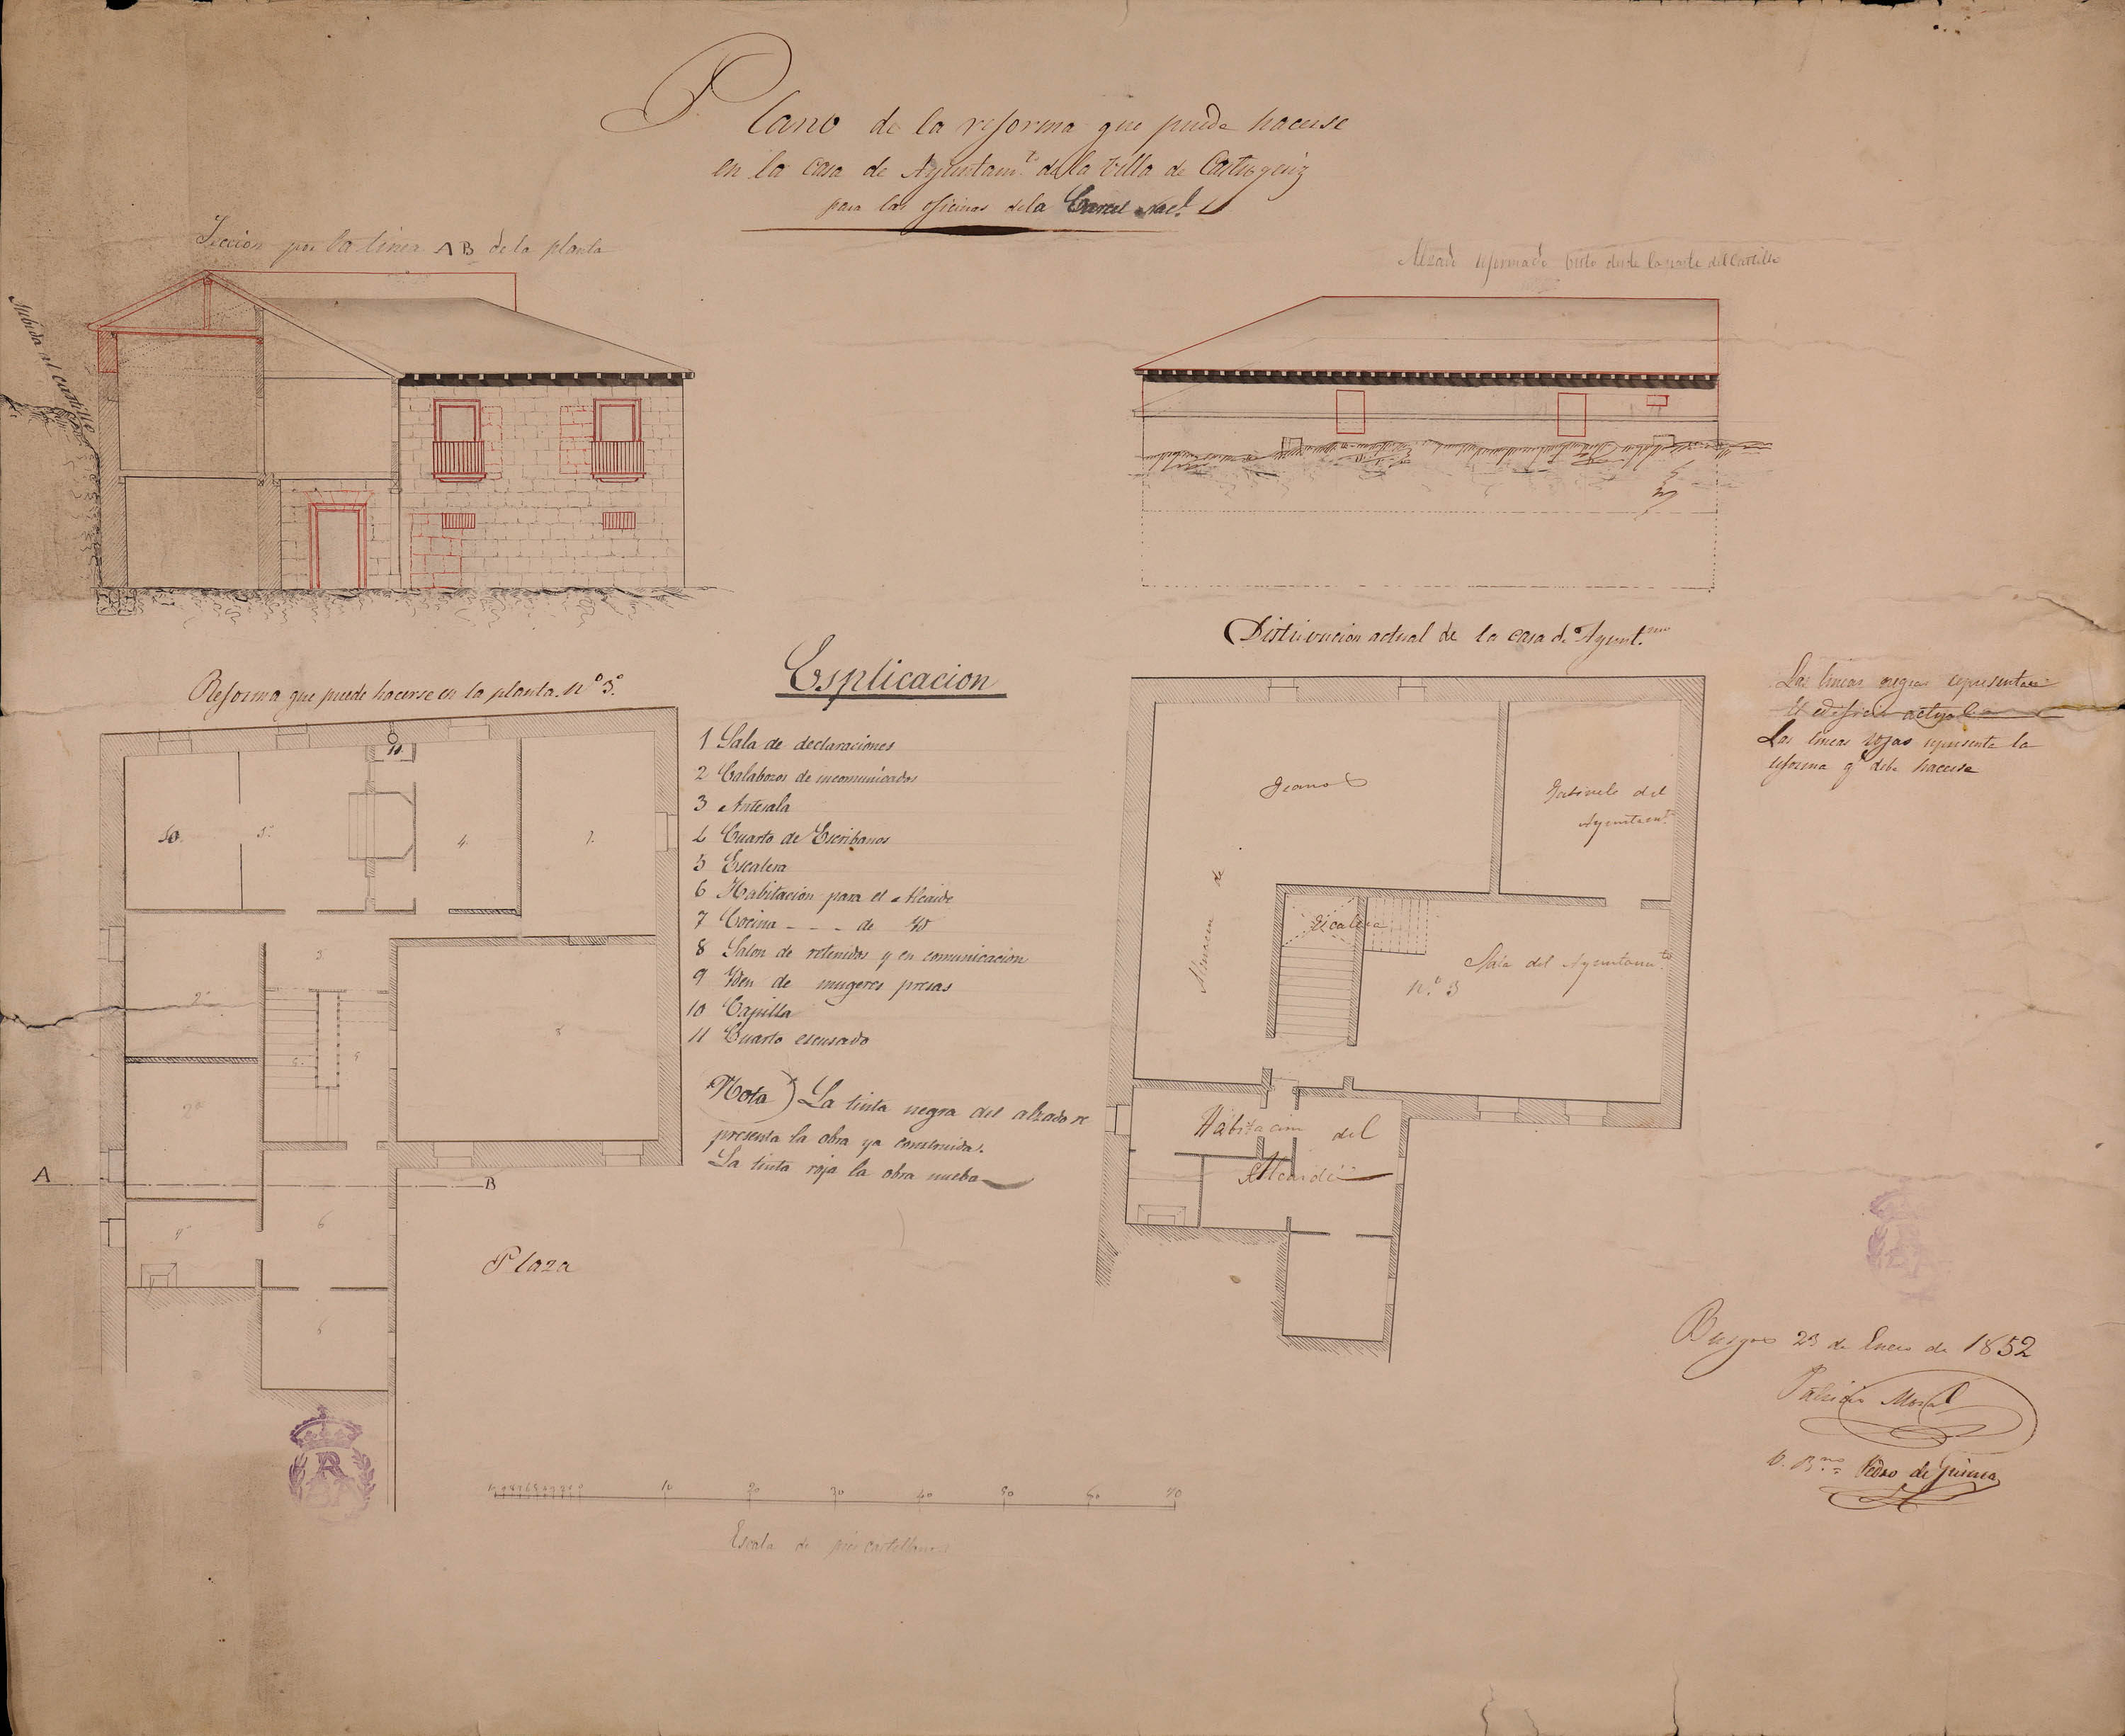 Plano de la reforma que puede hacerse
en la casa de Ayuntam.to de la Villa de Castrogeriz
para las oficinas de la Carcel Nac.l
Seccion por la linea A B de la planta
Alzado reformado visto desde la parte del Castillo
Subida al castillo
Distribucion actual de la casa de Ayunt.mto
Reforma que puede hacerse en la planta nº 3º.
Esplicacion
1 Sala de declaraciones
2 Calabozos de incomunicados
3 Antesala
4 Cuarto de Escribanos
5 Escalera
6 Habitacion para el Alcaide
7 Cocina - - - de Yd
8 Salon de retenidos y en comunicacion
9 Yden de mugeres presas
10 Capilla
11 Cuarto escusado
Nota) La tinta negra del alzado re
presenta la obra ya construida.
La tinta roja la obra nueba
Las lineas negras representan
el edificio actual
Las lineas rojas representa la
reforma q.e debe hacerse
11
10.
3.
4.
9.
3
2ª
8
5
5
2ª
A
B
6
6
Plaza
Almacen de
Granos
Gabinete del
Ayuntam.to
Escalera
Sala del Ayuntam.to
n.º 3
Habitacion del
Alcaide
Burgos 23 de Enero de 1852
Patricio Moral
V. B.no Pedro de
10 20 30 40 50 60 70
Escala de pies castellanos